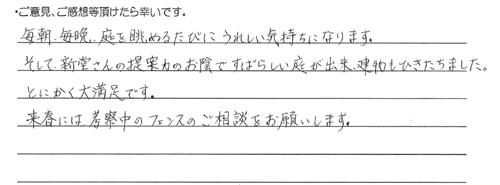 ・ご意見、ご感想等頂けたら幸いです。
毎朝、毎晩、庭を眺めるたびにうれしい気持ちになります。
そして、新堂さんの提案力のお陰ですばらしい庭が出来、建物もひきたちました。
とにかく大満足です。
来春には考察中のフェンスのご相談をお願いします。